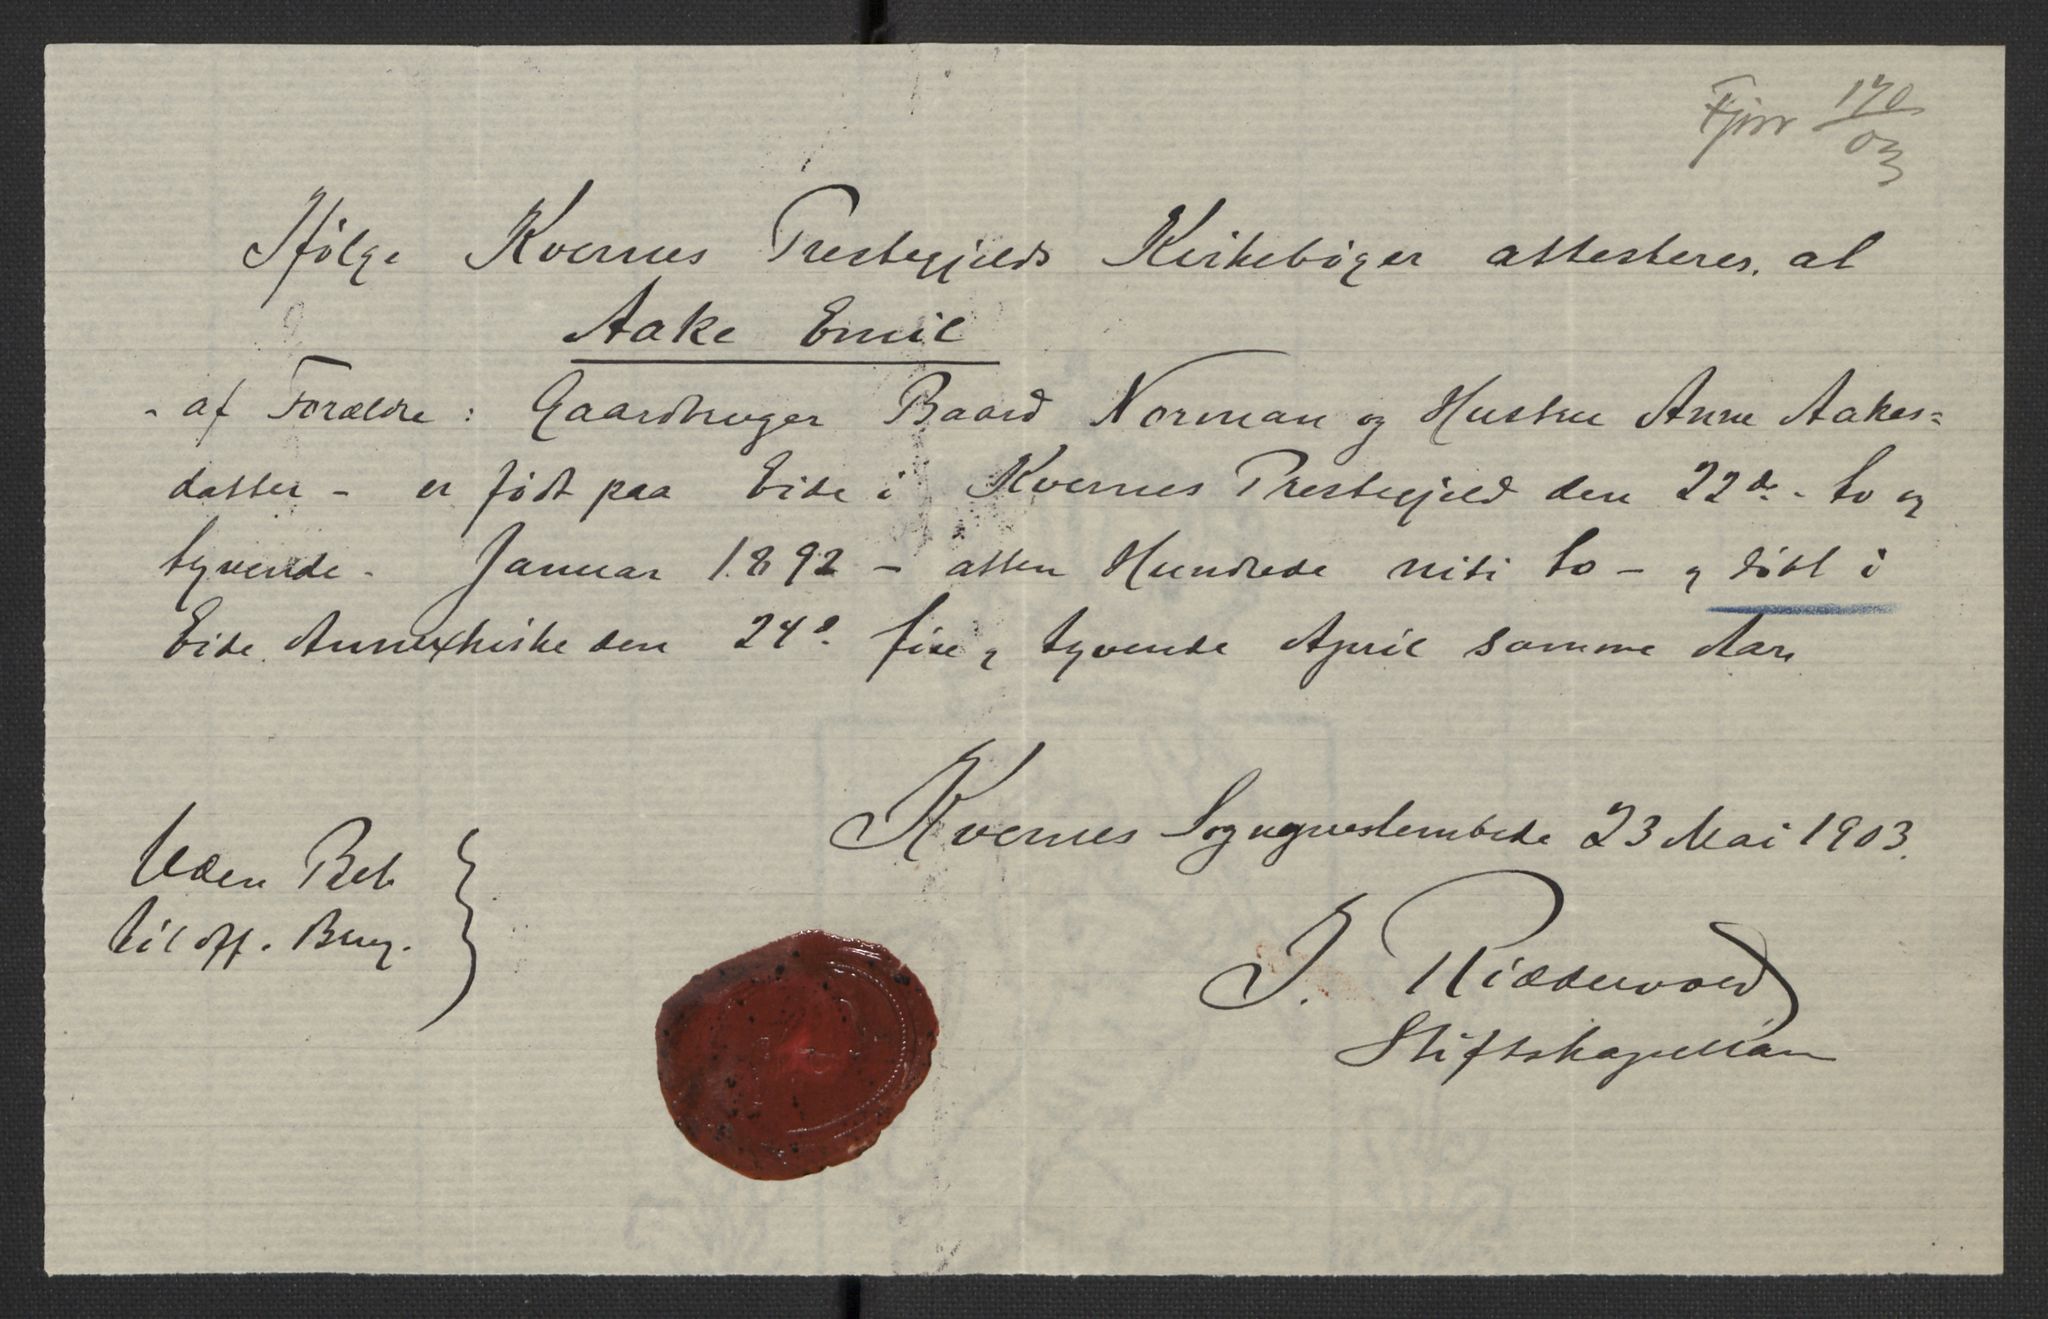 170
03
Ifølge Kvernes Prestegjelds Kirkebøger attesteres, at
Aake Emil
- af Forældre: Gaardbruger Baard Norman og Hustru Anne Aakes=
datter - er født paa Eide i Kvernes Prestegjeld den 22de - to og
tyvende - Januar 1892 - atten Hundrede niti to - og døbt i
Eide Annexkirke den 24de fire og tyvende April samme Aar.
Kvernes Sogneprestembede 23 Mai 1903.
Uden Bet.
til off. Brug.
J. Riddervold
Stiftskapellan